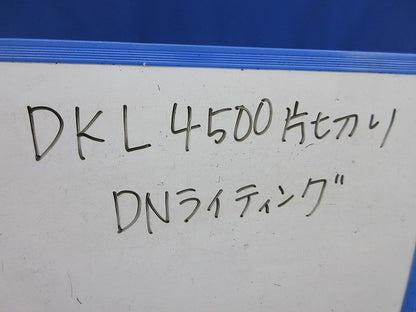 DKL 4500片切り
DNライティング